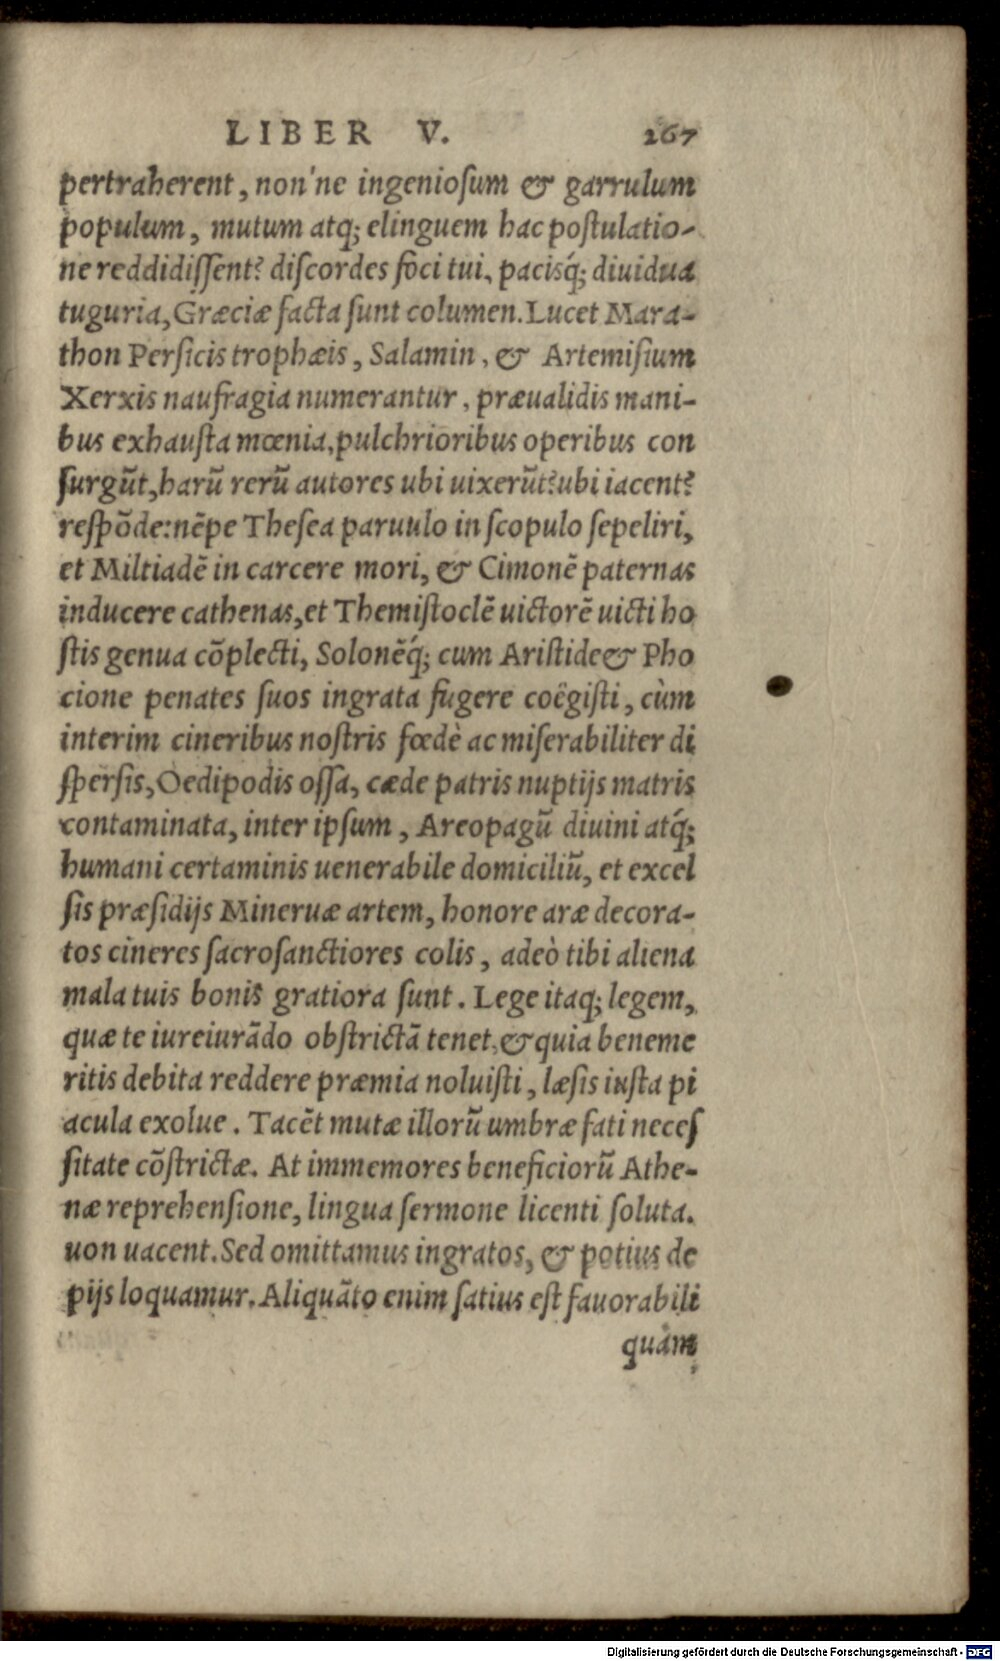 LIBER V. 267
pertraherent, non'ne ingeniosum & garrulum
populum, mutum atq; elinguem hac postulatio-
ne reddidissent? discordes foci tui, pacisq́; diuidua
tuguria, Græciæ facta sunt columen. Lucet Mara-
thon Persicis trophæis, Salamin, & Artemisium
Xerxis naufragia numerantur, præualidis mani-
bus exhausta mœnia, pulchrioribus operibus con
surgūt, harū rerū autores ubi uixerūt? ubi iacent?
respōde: nēpe Thesea paruulo in scopulo sepeliri,
et Miltiadē in carcere mori, & Cimonē paternas
inducere cathenas, et Themistoclē uictorē uicti ho
stis genua cōplecti, Solonēq́; cum Aristide & Pho
cione penates suos ingrata fugere coëgisti, cùm
interim cineribus nostris fœdè ac miserabiliter di
spersis, Oedipodis ossa, cæde patris nuptijs matris
contaminata, inter ipsum, Areopagū diuini atq́;
humani certaminis uenerabile domiciliū, et excel
sis præsidijs Mineruæ artem, honore aræ decora-
tos cineres sacrosanctiores colis, adeò tibi aliena
mala tuis bonis gratiora sunt. Lege itaq; legem,
quæ te iureiurādo obstrictā tenet, & quia beneme
ritis debita reddere præmia noluisti, læsis iusta pi
acula exolue. Tacēt mutæ illorū umbræ fati neces
sitate cōstrictæ. At immemores beneficiorū Athe-
næ reprehensione, lingua sermone licenti soluta.
uon uacent. Sed omittamus ingratos, & potius de
pijs loquamur. Aliquāto enim satius est fauorabili
quàm
Digitalisierung gefördert durch die Deutsche Forschungsgemeinschaft - DFG